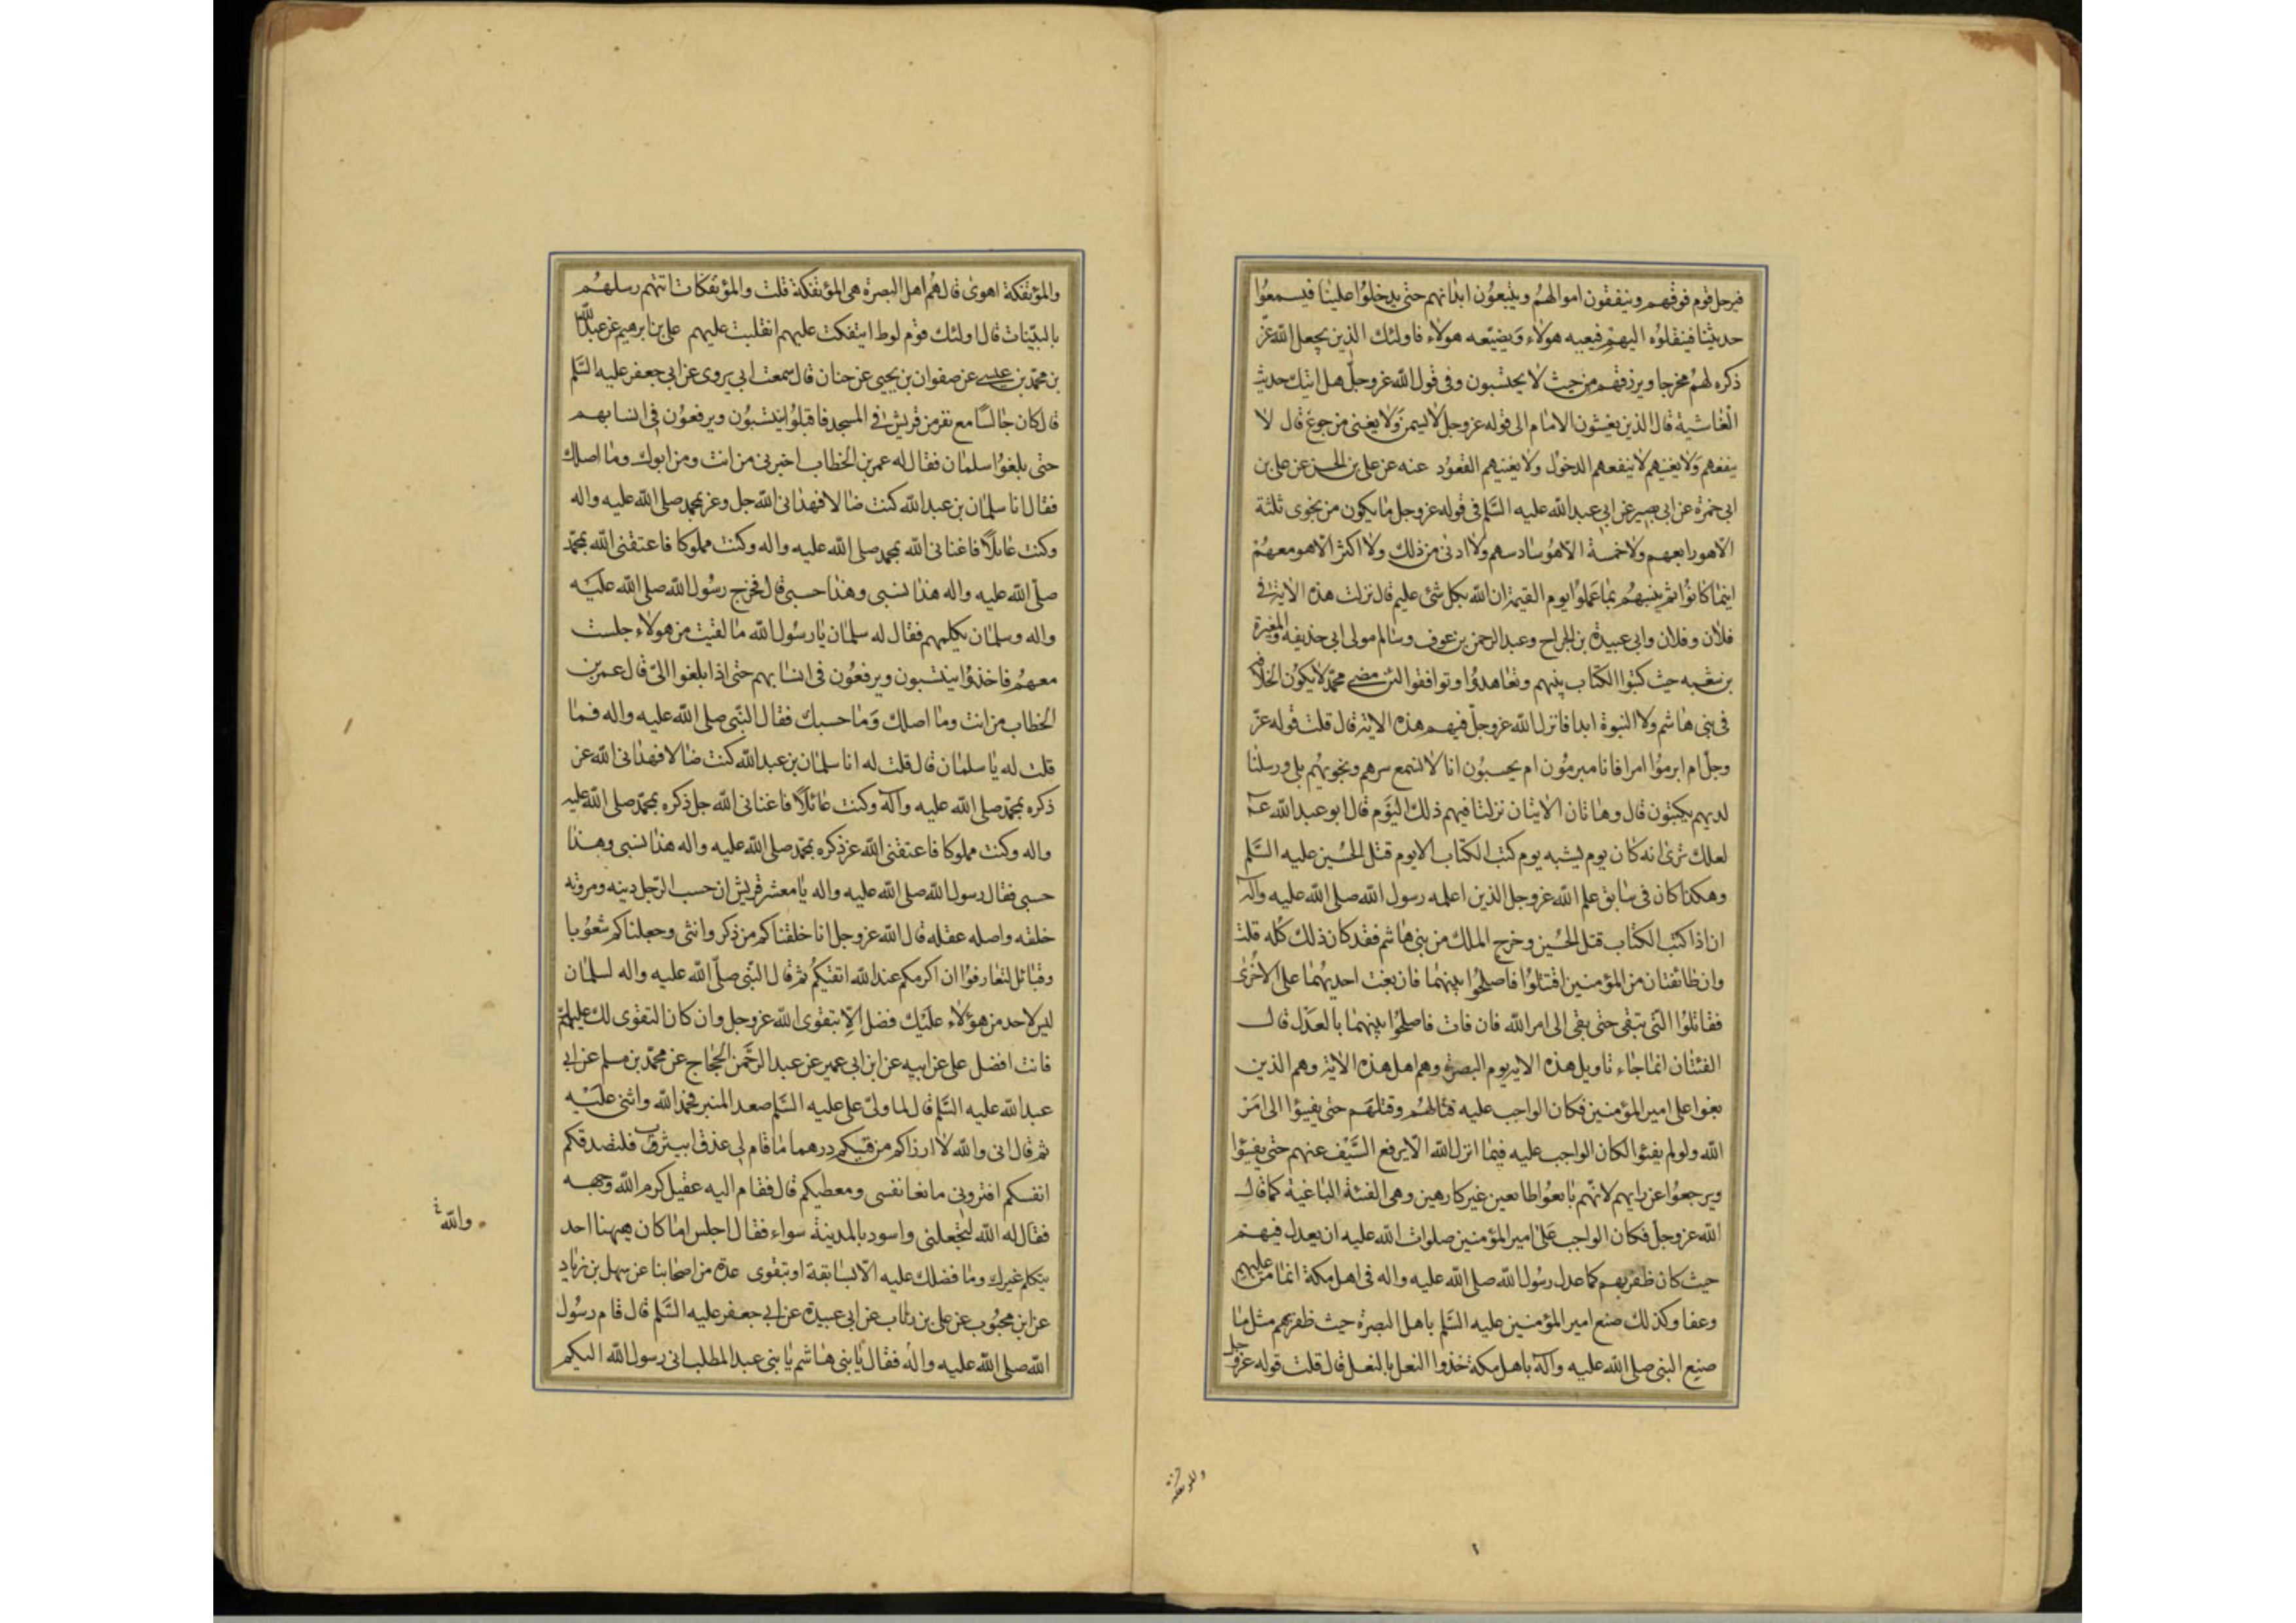 فيرحل قوم فوقهم وينفقون اموالهم ويتبعون ابدانهم حتى يدخلوا علينا فيسمعوا
حديثنا فينقلوه اليهم فيعيه هولاء ويضيعه هولاء فاولئك الذين يجعل الله عز
ذكره لهم مخرجا ويرزقهم من حيث لا يحتسبون وفى قول الله عز وجل هل اتيك حديث
الغاشية قال الذين يغشون الامام الى قوله عز وجل لا يسمن ولا يغنى من جوع قال لا
ينفعهم ولا يغنيهم لا ينفعهم الدخول ولا يغنيهم القعود عنه عن على بن الحسن عن على بن
ابى حمزة عن ابى بصير عن ابى عبد الله عليه السلم فى قوله عز وجل ما يكون من نجوى ثلثة
الا هو رابعهم ولا خمسة الا هو سادسهم ولا ادنى من ذلك ولا اكثر الا هو معهم
اينما كانوا ثم ينبئهم بما عملوا يوم القيمة ان الله بكل شئ عليم قال نزلت هذه الاية فى
فلان وفلان وابى عبيدة بن الجراح وعبد الرحمن بن عوف وسالم مولى ابى حذيفه والمغيرة
بن شعبه حيث كتبوا الكتاب بينهم وتعاهدوا وتوافقوا لئن مضى محمد لا يكون الخلافة
فى بنى هاشم ولا النبوة ابدا فانزل الله عز وجل فيهم هذه الاية قال قلت قوله عز
وجل ام ابرموا امرا فانا مبرمون ام يحسبون انا لا نسمع سرهم ونجويهم بلى ورسلنا
لديهم يكتبون قال وهاتان الايتان نزلتا فيهم ذلك اليوم قال ابو عبد الله ع
لعلك ترى انه كان يوم يشبه يوم كتب الكتاب الا يوم قتل الحسين عليه السلم
وهكذا كان فى سابق علم الله عز وجل الذين اعلمه رسول الله صلى الله عليه وآله
ان اذا كتب الكتاب قتل الحسين وخرج الملك من بنى هاشم فقد كان ذلك كله قلت
وان طائفتان من المؤمنين اقتتلوا فاصلحوا بينهما فان بغت احديهما على الاخرى
فقاتلوا التى تبغى حتى تفى الى امر الله فان فاءت فاصلحوا بينهما بالعدل قال
الفئتان انما جاء تاويل هذه الاية يوم البصرة وهم اهل هذه الاية وهم الذين
بغوا على امير المؤمنين فكان الواجب عليه قتالهم وقتلهم حتى يفيئوا الى امر
الله ولو لم يفيئوا لكان الواجب عليه فيما انزل الله الا يرفع السيف عنهم حتى يفيئوا
ويرجعوا عن رايهم لانهم بايعوا طايعين غير كارهين وهى الفئة الباغية كما قال
الله عز وجل فكان الواجب على امير المؤمنين صلوات الله عليه ان يعدل فيهم
حيث كان ظفر بهم كما عدل رسول الله صلى الله عليه واله فى اهل مكة انما من عليهم
وعفا وكذلك صنع امير المؤمنين عليه السلم باهل البصرة حيث ظفر بهم مثل ما
صنع النبى صلى الله عليه وآله باهل مكة حذوا النعل بالنعل قال قلت قوله عز وجل
والمؤتفكة
والمؤتفكة اهوى قال هم اهل البصرة هى المؤتفكة قلت والمؤتفكات اتتهم رسلهم
بالبينات قال اولئك قوم لوط ايتفكت عليهم انقلبت عليهم على بن ابرهيم عن عبد الله
بن محمد بن عيسى عن صفوان بن يحيى عن حنان قال سمعت ابى يروى عن ابى جعفر عليه السلم
قال كان جالسا مع نفر من قريش فى المسجد فاقبلوا ينتسبون ويرفعون فى انسابهم
حتى بلغوا سلمان فقال له عمر بن الخطاب اخبرنى من انت ومن ابوك وما اصلك
فقال انا سلمان بن عبد الله كنت ضالا فهدانى الله جل وعز بمحمد صلى الله عليه واله
وكنت عايلا فاغنانى الله بمحمد صلى الله عليه واله وكنت مملوكا فاعتقنى الله بمحمد
صلى الله عليه واله هذا نسبى وهذا حسبى قال فخرج رسول الله صلى الله عليه
واله وسلمان يكلمهم فقال له سلمان يا رسول الله ما لقيت من هولاء جلست
معهم فاخذوا ينتسبون ويرفعون فى انسابهم حتى اذا بلغوا الى قال عمر بن
الخطاب من انت وما اصلك وما حسبك فقال النبى صلى الله عليه واله فما
قلت له يا سلمان قال قلت له انا سلمان بن عبد الله كنت ضالا فهدانى الله عز
ذكره بمحمد صلى الله عليه وآله وكنت عائلا فاغنانى الله جل ذكره بمحمد صلى الله عليه
واله وكنت مملوكا فاعتقنى الله عز ذكره بمحمد صلى الله عليه واله هذا نسبى وهذا
حسبى فقال رسول الله صلى الله عليه واله يا معشر قريش ان حسب الرجل دينه ومروته
خلقه واصله عقله قال الله عز وجل انا خلقناكم من ذكر وانثى وجعلناكم شعوبا
وقبائل لتعارفوا ان اكرمكم عند الله اتقيكم ثم قال النبى صلى الله عليه واله لسلمان
ليس لاحد من هؤلاء عليك فضل الا بتقوى الله عز وجل وان كان التقوى لك عليهم
فانت افضل على عن ابيه عن ابن ابى عمير عن عبد الرحمن الحجاج عن محمد بن مسلم عن ابى
عبد الله عليه السلم قال لما ولى على عليه السلم صعد المنبر فحمد الله واثنى عليه
ثم قال انى والله لا ارزاكم من فيئكم درهما ما قام لى عذق بيثرب فلتصدقكم
انفسكم افترونى مانعا نفسى ومعطيكم قال فقام اليه عقيل كرم الله وجهه
فقال له الله لتجعلنى واسود بالمدينة سواء فقال اجلس اما كان ههنا احد
يتكلم غيرك وما فضلك عليه الا بسابقة او بتقوى عدة من اصحابنا عن سهل بن زياد
عن ابن محبوب عن على بن رئاب عن ابى عبيدة عن ابى جعفر عليه السلم قال قام رسول
الله صلى الله عليه واله فقال يا بنى هاشم يا بنى عبد المطلب انى رسول الله اليكم
والله